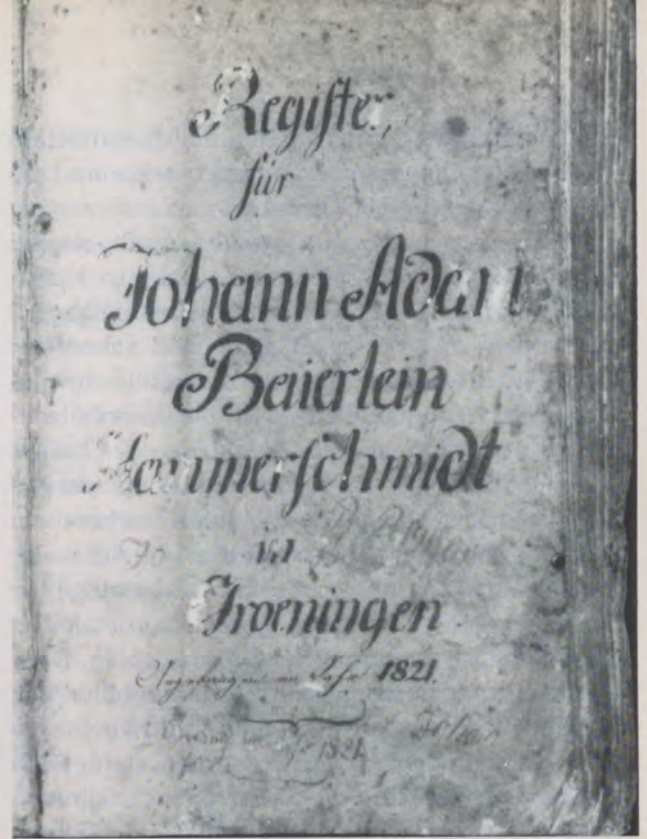 Register
für
Johann Adam
Beierlein
Hammerschmidt
in
Groeningen
im Jahr 1821.
1821